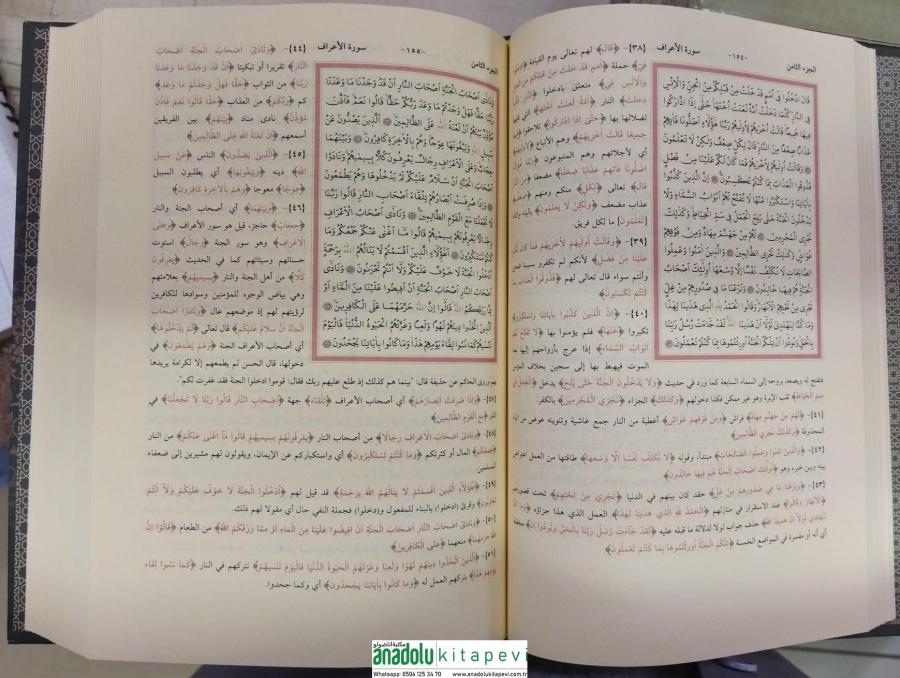 الجزء الثامن
-١٥٤-
سورة الأعراف
قَالَ ادْخُلُوا فِي أُمَمٍ قَدْ خَلَتْ مِنْ قَبْلِكُمْ مِنَ الْجِنِّ وَالْإِنْسِ
فِي النَّارِ كُلَّمَا دَخَلَتْ أُمَّةٌ لَعَنَتْ أُخْتَهَا حَتَّى إِذَا ادَّارَكُوا
فِيهَا جَمِيعًا قَالَتْ أُخْرٰيهُمْ لِأُولٰيهُمْ رَبَّنَا هٰؤُلَاءِ أَضَلُّونَا فَاٰتِهِمْ
عَذَابًا ضِعْفًا مِنَ النَّارِ قَالَ لِكُلٍّ ضِعْفٌ وَلٰكِنْ لَا تَعْلَمُونَ
وَقَالَتْ أُولٰيهُمْ لِأُخْرٰيهُمْ فَمَا كَانَ لَكُمْ عَلَيْنَا مِنْ فَضْلٍ
فَذُوقُوا الْعَذَابَ بِمَا كُنْتُمْ تَكْسِبُونَ إِنَّ الَّذِينَ كَذَّبُوا
بِاٰيَاتِنَا وَاسْتَكْبَرُوا عَنْهَا لَا تُفَتَّحُ لَهُمْ أَبْوَابُ السَّمَاءِ وَلَا
يَدْخُلُونَ الْجَنَّةَ حَتَّى يَلِجَ الْجَمَلُ فِي سَمِّ الْخِيَاطِ وَكَذٰلِكَ
نَجْزِي الْمُجْرِمِينَ لَهُمْ مِنْ جَهَنَّمَ مِهَادٌ وَمِنْ فَوْقِهِمْ
غَوَاشٍ وَكَذٰلِكَ نَجْزِي الظَّالِمِينَ وَالَّذِينَ اٰمَنُوا وَعَمِلُوا
الصَّالِحَاتِ لَا نُكَلِّفُ نَفْسًا إِلَّا وُسْعَهَا أُولٰئِكَ أَصْحَابُ
الْجَنَّةِ هُمْ فِيهَا خَالِدُونَ وَنَزَعْنَا مَا فِي صُدُورِهِمْ مِنْ غِلٍّ
تَجْرِي مِنْ تَحْتِهِمُ الْأَنْهَارُ وَقَالُوا الْحَمْدُ لِلّٰهِ الَّذِي هَدٰينَا لِهٰذَا
وَمَا كُنَّا لِنَهْتَدِيَ لَوْلَا أَنْ هَدٰينَا اللّٰهُ لَقَدْ جَاءَتْ رُسُلُ رَبِّنَا
بِالْحَقِّ وَنُودُوا أَنْ تِلْكُمُ الْجَنَّةُ أُورِثْتُمُوهَا بِمَا كُنْتُمْ تَعْمَلُونَ
{٣٨}- ﴿قَالَ﴾ لهم تعالى يوم القيامة
جملة ﴿أُمَمٍ قَدْ خَلَتْ مِنْ قَبْلِكُمْ مِنَ
وَالْإِنْسِ فِي﴾ متعلق بادخلوا
دَخَلَتْ﴾ النار ﴿أُمَّةٌ لَعَنَتْ أُخْتَهَا﴾
لضلالها بها ﴿حَتَّى إِذَا ادَّارَكُوا﴾ تلاحقوا
جَمِيعًا قَالَتْ أُخْرٰيهُمْ﴾ وهم الأتباع
أي لأجلائهم وهم المتبوعون
أَضَلُّونَا فَاٰتِهِمْ عَذَابًا ضِعْفًا﴾ مضعفا
قال تعالى ﴿لِكُلٍّ﴾ منكم ومنهم
عذاب مضعف ﴿وَلٰكِنْ لَا يَعْلَمُونَ﴾ بالياء
[تَعْلَمُونَ] ما لكل فريق.
{٣٩}- ﴿وَقَالَتْ أُولٰيهُمْ لِأُخْرٰيهُمْ فَمَا كَانَ
عَلَيْنَا مِنْ فَضْلٍ﴾ لأنكم لم تكفروا بسببنا
وأنتم سواء قال تعالى لهم ﴿فَذُوقُوا الْعَذَابَ
كُنْتُمْ تَكْسِبُونَ﴾
{٤٠}- ﴿إِنَّ الَّذِينَ كَذَّبُوا بِاٰيَاتِنَا وَاسْتَكْبَرُوا﴾
تكبروا ﴿عَنْهَا﴾ فلم يؤمنوا بها ﴿لَا تُفَتَّحُ لَهُمْ
أَبْوَابُ السَّمَاءِ﴾ إذا عرج بأرواحهم إليها
الموت فيهبط بها إلى سجين بخلاف
فتفتح له ويصعد بروحه إلى السماء السابعة كما ورد في حديث ﴿وَلَا يَدْخُلُونَ الْجَنَّةَ حَتَّى يَلِجَ﴾ يدخل ﴿الْجَمَلُ فِي
سَمِّ الْخِيَاطِ﴾ ثقب الإبرة وهو غير ممكن فكذا دخولهم ﴿وَكَذٰلِكَ﴾ الجزاء ﴿نَجْزِي الْمُجْرِمِينَ﴾ بالكفر.
{٤١}- ﴿لَهُمْ مِنْ جَهَنَّمَ مِهَادٌ﴾ فراش ﴿وَمِنْ فَوْقِهِمْ غَوَاشٍ﴾ أغطية من النار جمع غاشية وتنوينه عوض من الياء
المحذوفة ﴿وَكَذٰلِكَ نَجْزِي الظَّالِمِينَ﴾
{٤٢}- ﴿وَالَّذِينَ اٰمَنُوا وَعَمِلُوا الصَّالِحَاتِ﴾ مبتدأ، وقوله ﴿لَا نُكَلِّفُ نَفْسًا إِلَّا وُسْعَهَا﴾ طاقتها من العمل اعتراض
بينه وبين خبره وهو ﴿أُولٰئِكَ أَصْحَابُ الْجَنَّةِ هُمْ فِيهَا خَالِدُونَ﴾
{٤٣}- ﴿وَنَزَعْنَا مَا فِي صُدُورِهِمْ مِنْ غِلٍّ﴾ حقد كان بينهم في الدنيا ﴿تَجْرِي مِنْ تَحْتِهِمُ﴾ تحت قصورهم
﴿الْأَنْهَارُ وَقَالُوا﴾ عند الاستقرار في منازلهم ﴿الْحَمْدُ لِلّٰهِ الَّذِي هَدٰينَا لِهٰذَا﴾ العمل الذي هذا جزاؤه
لِنَهْتَدِيَ لَوْلَا أَنْ هَدٰينَا اللّٰهُ﴾ حذف جواب لولا لدلالة ما قبله عليه ﴿لَقَدْ جَاءَتْ رُسُلُ رَبِّنَا بِالْحَقِّ وَنُودُوا أَنْ﴾ مخففة
أي أنه أو مفسرة في المواضع الخمسة ﴿تِلْكُمُ الْجَنَّةُ أُورِثْتُمُوهَا بِمَا كُنْتُمْ تَعْمَلُونَ﴾
الجزء الثامن
-١٥٥-
سورة الأعراف
وَنَادٰى أَصْحَابُ الْجَنَّةِ أَصْحَابَ النَّارِ أَنْ قَدْ وَجَدْنَا مَا وَعَدَنَا
رَبُّنَا حَقًّا فَهَلْ وَجَدْتُمْ مَا وَعَدَ رَبُّكُمْ حَقًّا قَالُوا نَعَمْ فَأَذَّنَ
مُؤَذِّنٌ بَيْنَهُمْ أَنْ لَعْنَةُ اللّٰهِ عَلَى الظَّالِمِينَ الَّذِينَ يَصُدُّونَ عَنْ
سَبِيلِ اللّٰهِ وَيَبْغُونَهَا عِوَجًا وَهُمْ بِالْاٰخِرَةِ كَافِرُونَ وَبَيْنَهُمَا
حِجَابٌ وَعَلَى الْأَعْرَافِ رِجَالٌ يَعْرِفُونَ كُلًّا بِسِيمٰيهُمْ وَنَادَوْا
أَصْحَابَ الْجَنَّةِ أَنْ سَلَامٌ عَلَيْكُمْ لَمْ يَدْخُلُوهَا وَهُمْ يَطْمَعُونَ
وَإِذَا صُرِفَتْ أَبْصَارُهُمْ تِلْقَاءَ أَصْحَابِ النَّارِ قَالُوا رَبَّنَا
لَا تَجْعَلْنَا مَعَ الْقَوْمِ الظَّالِمِينَ وَنَادٰى أَصْحَابُ الْأَعْرَافِ
رِجَالًا يَعْرِفُونَهُمْ بِسِيمٰيهُمْ قَالُوا مَا أَغْنٰى عَنْكُمْ جَمْعُكُمْ وَمَا
كُنْتُمْ تَسْتَكْبِرُونَ أَهٰؤُلَاءِ الَّذِينَ أَقْسَمْتُمْ لَا يَنَالُهُمُ اللّٰهُ بِرَحْمَةٍ
ادْخُلُوا الْجَنَّةَ لَا خَوْفٌ عَلَيْكُمْ وَلَا أَنْتُمْ تَحْزَنُونَ وَنَادٰى
أَصْحَابُ النَّارِ أَصْحَابَ الْجَنَّةِ أَنْ أَفِيضُوا عَلَيْنَا مِنَ الْمَاءِ أَوْ
مِمَّا رَزَقَكُمُ اللّٰهُ قَالُوا إِنَّ اللّٰهَ حَرَّمَهُمَا عَلَى الْكَافِرِينَ
الَّذِينَ اتَّخَذُوا دِينَهُمْ لَهْوًا وَلَعِبًا وَغَرَّتْهُمُ الْحَيٰوةُ الدُّنْيَا فَالْيَوْمَ
نَنْسٰيهُمْ كَمَا نَسُوا لِقَاءَ يَوْمِهِمْ هٰذَا وَمَا كَانُوا بِاٰيَاتِنَا يَجْحَدُونَ
{٤٤}- ﴿وَنَادٰى أَصْحَابُ الْجَنَّةِ أَصْحَابَ
النَّارِ﴾ تقريرا أو تبكيتا ﴿أَنْ قَدْ وَجَدْنَا مَا وَعَدَنَا
رَبُّنَا﴾ من الثواب ﴿حَقًّا فَهَلْ وَجَدْتُمْ مَا وَعَدَ﴾
كم ﴿رَبُّكُمْ﴾ من العذاب ﴿حَقًّا قَالُوا نَعَمْ فَأَذَّنَ
مُؤَذِّنٌ﴾ نادى مناد ﴿بَيْنَهُمْ﴾ بين الفريقين
أسمعهم ﴿أَنْ لَعْنَةُ اللّٰهِ عَلَى الظَّالِمِينَ﴾
{٤٥}- ﴿الَّذِينَ يَصُدُّونَ﴾ الناس ﴿عَنْ سَبِيلِ
اللّٰهِ﴾ دينه ﴿وَيَبْغُونَهَا﴾ أي يطلبون السبيل
﴿عِوَجًا﴾ معوجا ﴿وَهُمْ بِالْاٰخِرَةِ كَافِرُونَ﴾
{٤٦}- ﴿وَبَيْنَهُمَا﴾ أي أصحاب الجنة والنار
﴿حِجَابٌ﴾ حاجز، قيل هو سور الأعراف ﴿وَعَلَى
الْأَعْرَافِ﴾ وهو سور الجنة ﴿رِجَالٌ﴾ استوت
حسناتهم وسيئاتهم كما في الحديث ﴿يَعْرِفُونَ
كُلًّا﴾ من أهل الجنة والنار ﴿بِسِيمٰيهُمْ﴾ بعلامتهم
وهي بياض الوجوه للمؤمنين وسوادها للكافرين
لرؤيتهم لهم إذ موضعهم عال ﴿وَنَادَوْا أَصْحَابَ
الْجَنَّةِ أَنْ سَلَامٌ عَلَيْكُمْ﴾ قال تعالى ﴿لَمْ يَدْخُلُوهَا﴾
أي أصحاب الأعراف الجنة ﴿وَهُمْ يَطْمَعُونَ﴾ في
دخولها، قال الحسن لم يطمعهم إلا لكرامة يريدها
بهم وروى الحاكم عن حذيفة قال: "بينما هم كذلك إذ طلع عليهم ربك فقال: قوموا ادخلوا الجنة فقد غفرت لكم".
{٤٧}- ﴿وَإِذَا صُرِفَتْ أَبْصَارُهُمْ﴾ أي أصحاب الأعراف ﴿تِلْقَاءَ﴾ جهة ﴿أَصْحَابِ النَّارِ قَالُوا رَبَّنَا لَا تَجْعَلْنَا﴾ في
النار ﴿مَعَ الْقَوْمِ الظَّالِمِينَ﴾
{٤٨}- ﴿وَنَادٰى أَصْحَابُ الْأَعْرَافِ رِجَالًا﴾ من أصحاب النار ﴿يَعْرِفُونَهُمْ بِسِيمٰيهُمْ قَالُوا مَا أَغْنٰى عَنْكُمْ﴾ من النار
﴿جَمْعُكُمْ﴾ المال أو كثرتكم ﴿وَمَا كُنْتُمْ تَسْتَكْبِرُونَ﴾ أي واستكباركم عن الإيمان، ويقولون لهم مشيرين إلى ضعفاء
المسلمين
{٤٩}- ﴿أَهٰؤُلَاءِ الَّذِينَ أَقْسَمْتُمْ لَا يَنَالُهُمُ اللّٰهُ بِرَحْمَةٍ﴾ قد قيل لهم ﴿ادْخُلُوا الْجَنَّةَ لَا خَوْفٌ عَلَيْكُمْ وَلَا أَنْتُمْ
تَحْزَنُونَ﴾ وقرئ (ادخلوا) بالبناء للمفعول و(دخلوا) فجملة النفي حال أي مقولا لهم ذلك.
{٥٠}- ﴿وَنَادٰى أَصْحَابُ النَّارِ أَصْحَابَ الْجَنَّةِ أَنْ أَفِيضُوا عَلَيْنَا مِنَ الْمَاءِ أَوْ مِمَّا رَزَقَكُمُ اللّٰهُ﴾ من الطعام ﴿قَالُوا إِنَّ
اللّٰهَ حَرَّمَهُمَا﴾ منعهما ﴿عَلَى الْكَافِرِينَ﴾
{٥١}- ﴿الَّذِينَ اتَّخَذُوا دِينَهُمْ لَهْوًا وَلَعِبًا وَغَرَّتْهُمُ الْحَيٰوةُ الدُّنْيَا فَالْيَوْمَ نَنْسٰيهُمْ﴾ نتركهم في النار ﴿كَمَا نَسُوا لِقَاءَ
يَوْمِهِمْ هٰذَا﴾ بتركهم العمل له ﴿وَمَا كَانُوا بِاٰيَاتِنَا يَجْحَدُونَ﴾ أي وكما جحدوا.
مكتبة اناضولو
anadolukitapevi
Whatsapp: 0506 125 34 70 www.anadolukitapevi.com.tr